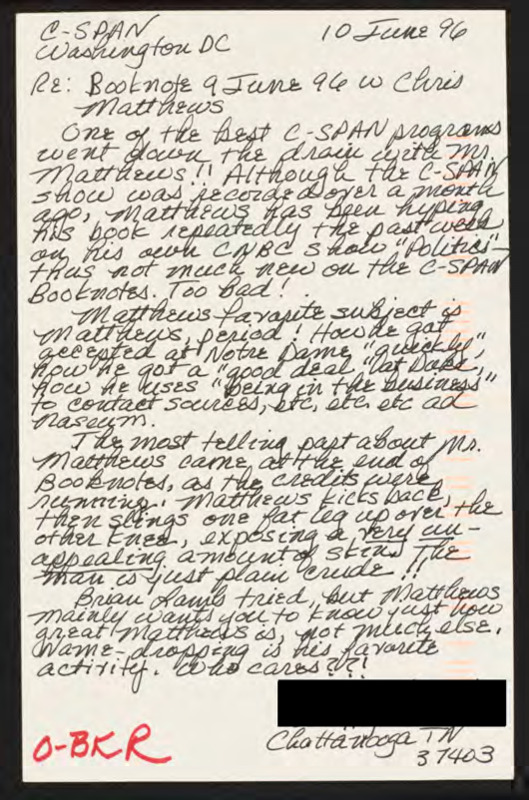 C-SPAN 10 June 96
Washington DC
Re: Booknote 9 June 96 w Chris
Matthews
One of the best C-SPAN programs
went down the drain with Mr.
Matthews!! Although the C-SPAN
show was recorded over a month
ago, Matthews has been hyping
his book repeatedly the past week
on his own CNBC show "Politics"
thus not much new on the C-SPAN
Booknotes. Too bad!
Matthews favorite subject is
Matthews, period! How he got
accepted at Notre Dame "quickly",
how he got a "good deal" at Duke,
how he uses "being in the business"
to contact sources, etc, etc etc ad
naseum.
The most telling part about Mr.
Matthews came at the end of
Booknotes, as the credits were
running. Matthews kicks back,
then slings one fat leg up over the
other knee, exposing a very un-
appealing amount of skin! The
man is just plain crude!!
Brian Lamb tried, but Matthews
mainly wants you to know just how
great Matthews is, not much else.
Name-dropping is his favorite
activity. Who cares?!?!
O-BKR
Chattanooga TN
37403